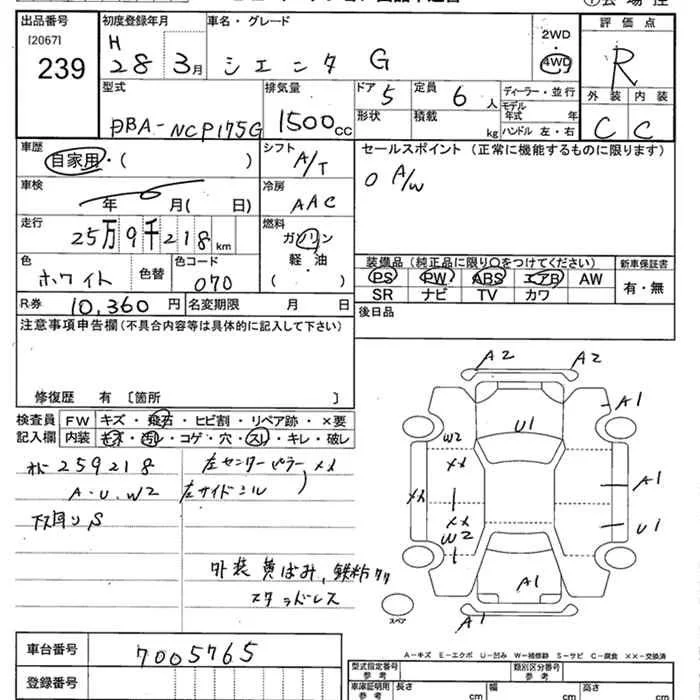 出品番号
[2067]
239
初度登録年月
H
28 3月
車名・グレード
シエンタ G
2WD
・
4WD
評価点
R
外装 内装
C C
型式
DBA-NCP175G
排気量
1500cc
ドア 5
定員 6人
形状
積載 kg
ディーラー・並行
モデル
年式 年
ハンドル 左・右
車歴
自家用・( )
シフト
A/T
セールスポイント (正常に機能するものに限ります)
O A/W
車検
年 月( 日)
冷房
AAC
走行
25万9千218km
燃料
ガソリン
・
軽油
( )
色
ホワイト
色替
色コード
070
装備品 (純正品に限り○をつけてください)
PS PW ABS エアB AW
SR ナビ TV カワ
新車保証書
有・無
R券 10,360円
名変期限 月 日
後日品
注意事項申告欄(不具合内容等は具体的に記入して下さい)
修復歴 有 [箇所 ]
検査員
記入欄
FW キズ・飛石・ヒビ割・リペア跡・×要
内装 キズ・汚レ・コゲ・穴・スレ・キレ・破レ
259218
A・U・W2
下廻りS
左センターピラーメメ
左サイドシル
外装黄ばみ,鉄粉
スタッドレス
A2 A2
A1
U1
W2
××
A1
××
××
U1
W2
A1
A1
スペア
A-キズ E-エクボ U-凹み W-補修跡 S-サビ C-腐食 ××-交換済
車台番号
7005765
登録番号
型式指定番号
参考
類別区分番号
参考
車庫証明用
参考
長さ cm
幅 cm
高さ cm